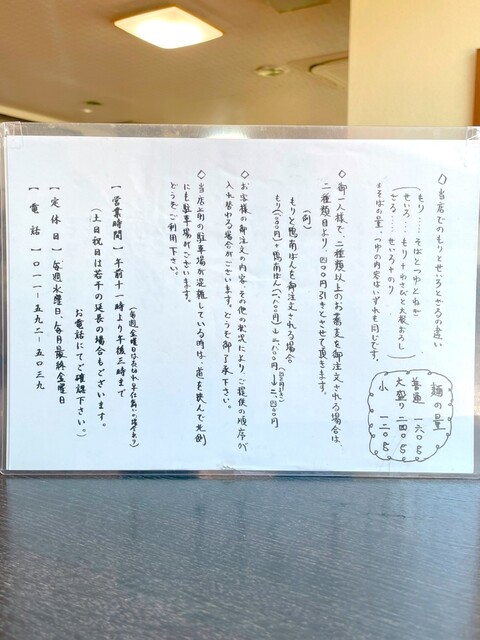 ◇ 当店でのもりとせいろとざるの違い
もり・・・・そばとつゆとねぎ
せいろ・・・もり＋わさびと大根おろし
ざる・・・・せいろ＋のり
＊そばの量、つゆの内容はいずれも同じです。
麺の量
普通 一六〇g
大盛り 二四〇g
小 一二〇g
◇ 御一人様で、二種類以上のお蕎麦を御注文される場合は、
二種類目より、四〇〇円引きとさせて頂きます。
(例)
もりと鴨南ばんを御注文される場合
◇ お客様の御注文の内容、その他の状況により、ご提供の順序が
入れ替わる場合がございます。どうも御了承下さい。
◇ 当店上側の駐車場が混雑している時は、道を挟んで北側
にも駐車場がございます。
どうぞご利用下さい。
【営業時間】 午前十一時より午後三時まで
(土日祝日は若干の延長の場合もございます。
お電話にてご確認下さい。)
【定休日】 毎週水曜日、毎月最終金曜日
【電話】 〇一一－五九二－五〇三九